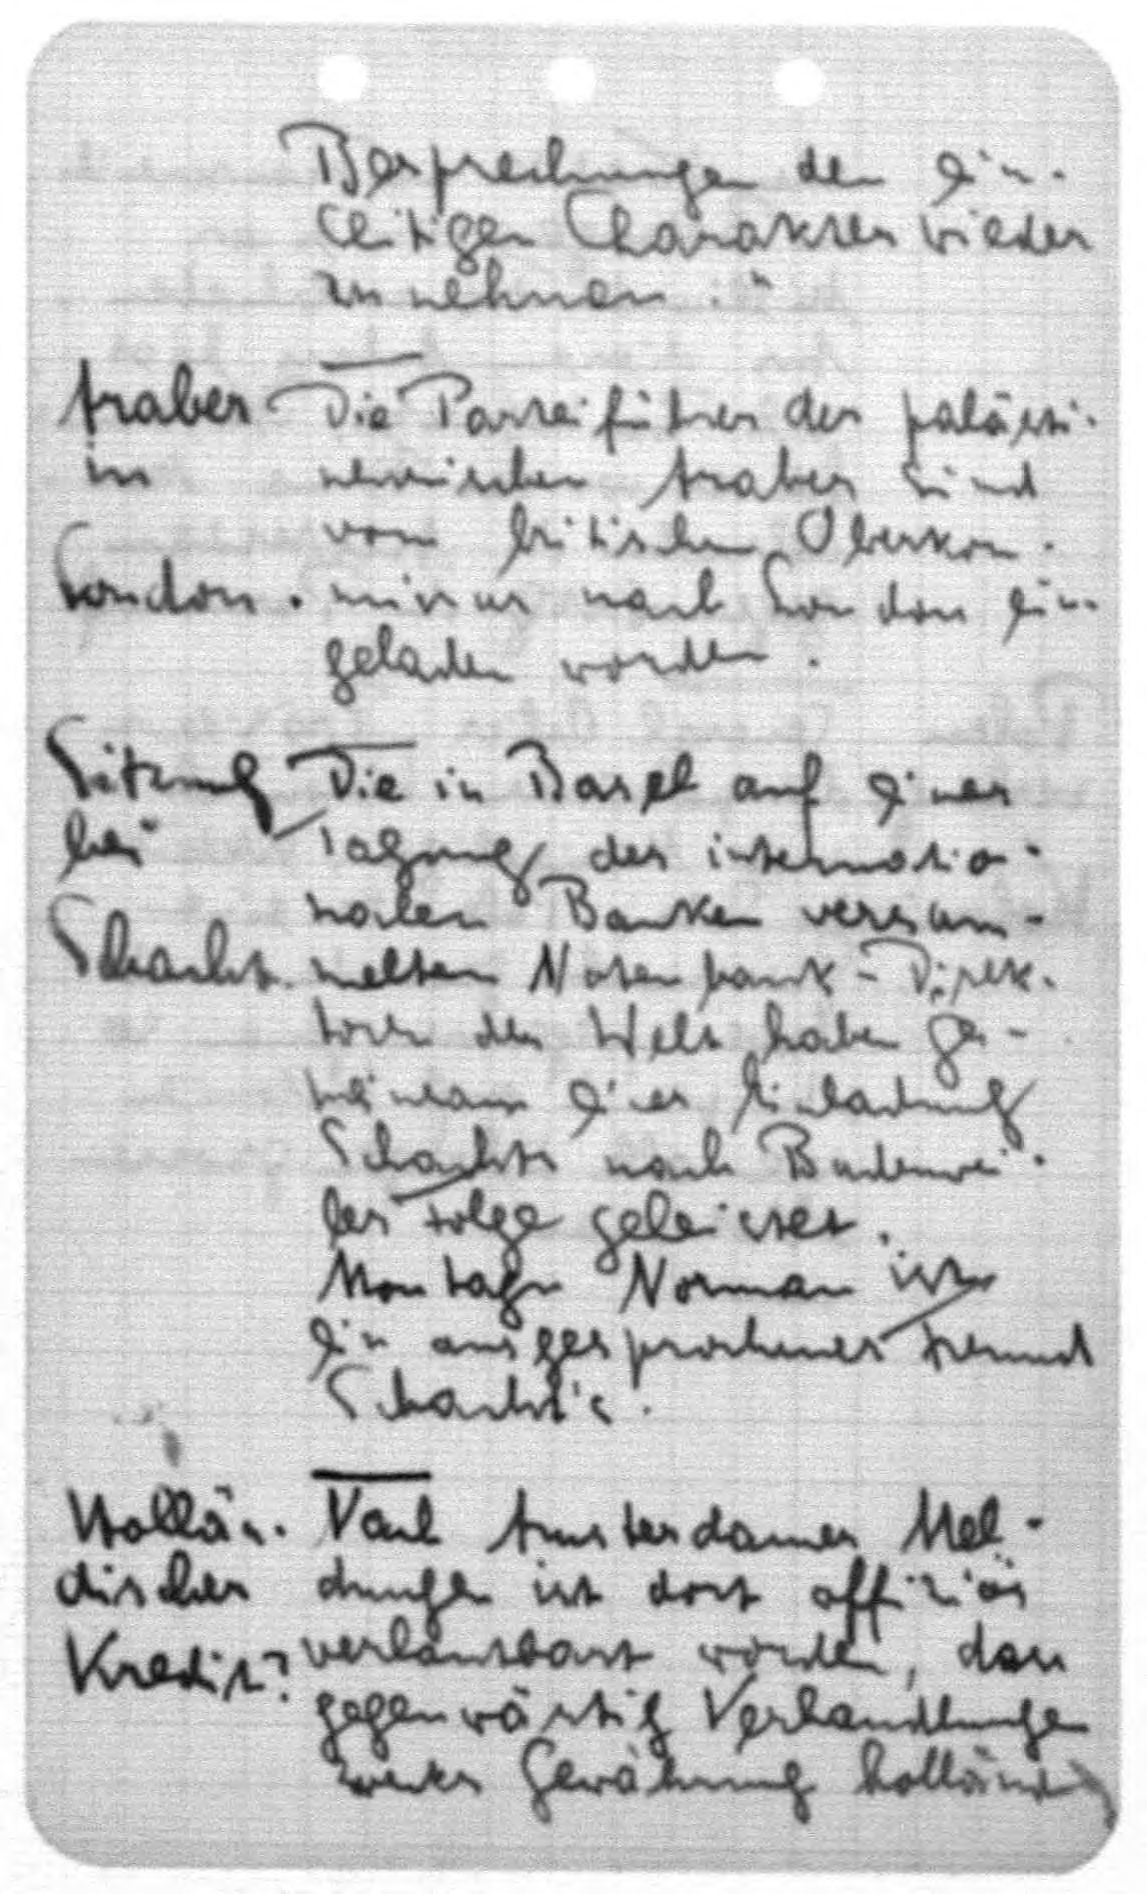 Besprechungen den ein-
seitigen Charakter wieder
zu nehmen."
Araber Die Parteiführer der palästi-
in nensischen Araber sind
vom britischen Oberkom-
London. missar nach London ein-
geladen worden.
Sitzung Die in Basel auf einer
bei Tagung der internatio-
nalen Banken versam-
Schacht. melten Notenbank-Direk-
toren der Welt haben ge-
meinsam einer Einladung
Schachts nach Badenwei-
ler Folge geleistet.
Montagu Norman ist
ein ausgesprochener Freund
Schacht's.
Hollän- Nach Amsterdamer Mel-
discher dungen ist dort offiziös
Kredit? verlautbart worden, dass
gegenwärtig Verhandlungen
zwecks Gewährung holländ